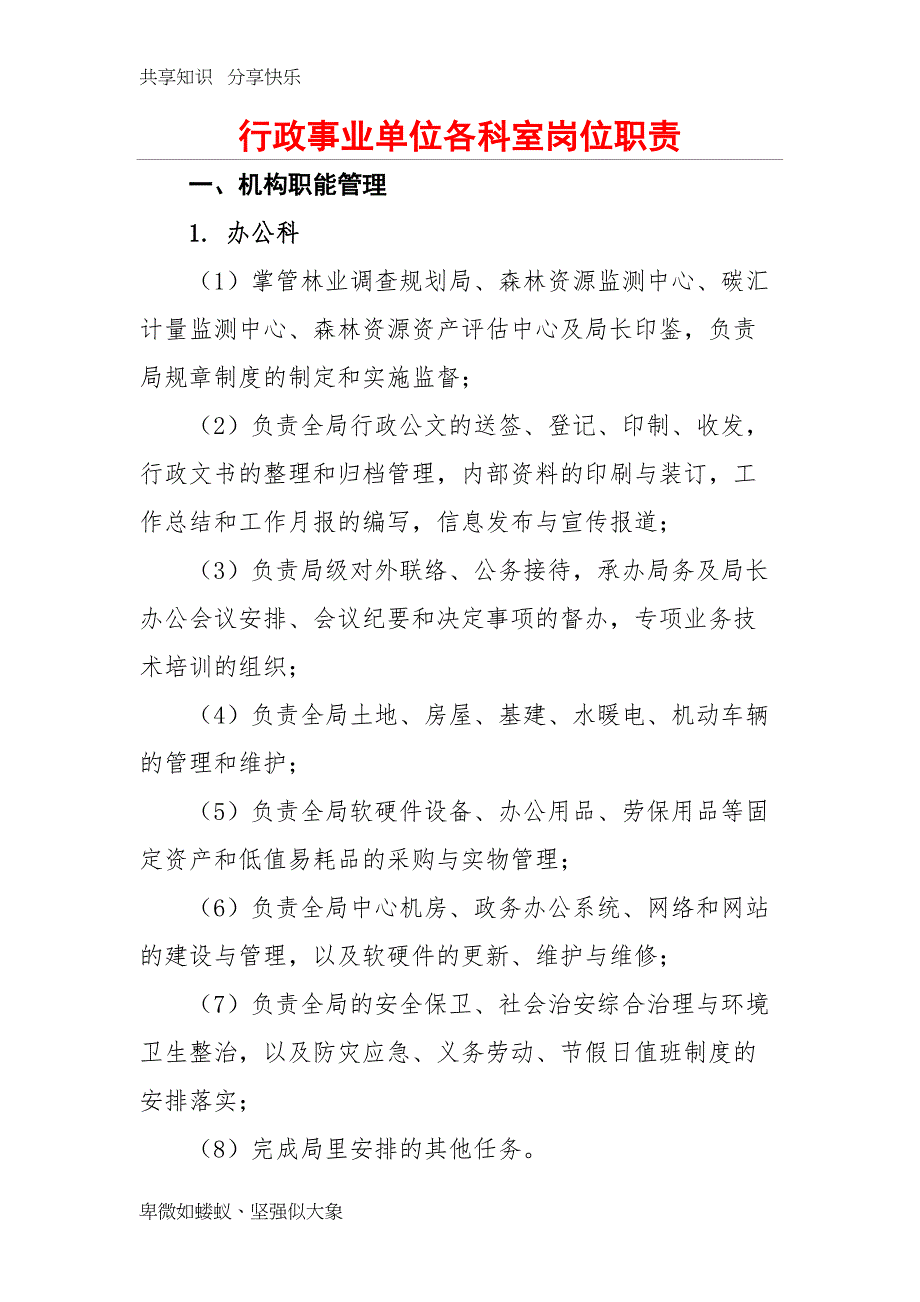 共享知识 分享快乐
行政事业单位各科室岗位职责
一、机构职能管理
1. 办公科
（1）掌管林业调查规划局、森林资源监测中心、碳汇
计量监测中心、森林资源资产评估中心及局长印鉴，负责
局规章制度的制定和实施监督；
（2）负责全局行政公文的送签、登记、印制、收发，
行政文书的整理和归档管理，内部资料的印刷与装订，工
作总结和工作月报的编写，信息发布与宣传报道；
（3）负责局级对外联络、公务接待，承办局务及局长
办公会议安排、会议纪要和决定事项的督办，专项业务技
术培训的组织；
（4）负责全局土地、房屋、基建、水暖电、机动车辆
的管理和维护；
（5）负责全局软硬件设备、办公用品、劳保用品等固
定资产和低值易耗品的采购与实物管理；
（6）负责全局中心机房、政务办公系统、网络和网站
的建设与管理，以及软硬件的更新、维护与维修；
（7）负责全局的安全保卫、社会治安综合治理与环境
卫生整治，以及防灾应急、义务劳动、节假日值班制度的
安排落实；
（8）完成局里安排的其他任务。
卑微如蝼蚁、坚强似大象